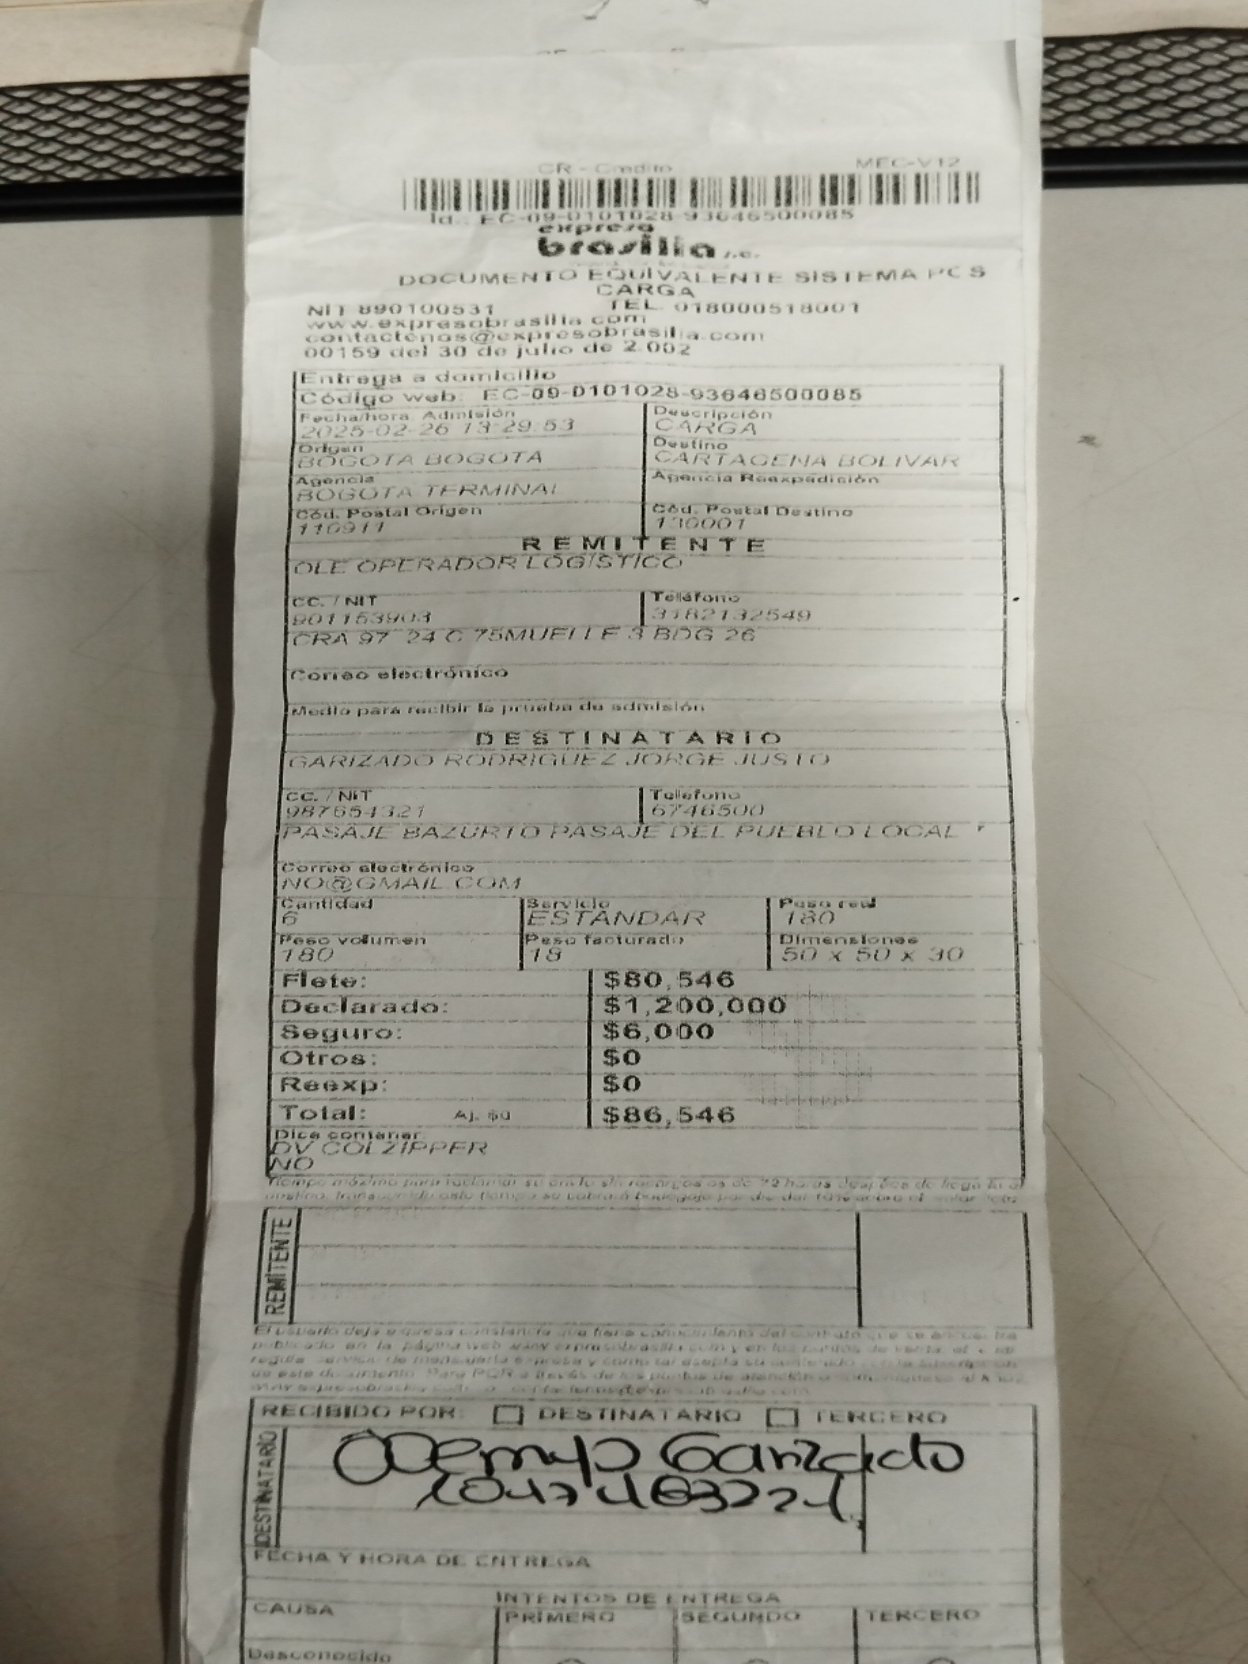 CR - Credito MEC-V12
Id.: EC-09-0101028-93646500085
expreso
brasilia s.a.
DOCUMENTO EQUIVALENTE SISTEMA POS
CARGA
NIT 890100531 TEL. 018000518001
www.expresobrasilia.com
contactenos@expresobrasilia.com
00159 del 30 de julio de 2.002
Entrega a domicilio
Código web: EC-09-0101028-93646500085
Fecha/hora Admisión Descripción
2025-02-26 13:29:53 CARGA
Origen Destino
BOGOTA BOGOTA CARTAGENA BOLIVAR
Agencia Agencia Reexpedición
BOGOTA TERMINAL
Cód. Postal Origen Cód. Postal Destino
110911 130001
REMITENTE
OLE OPERADOR LOGISTICO
CC. / NIT Teléfono
901153903 3182132549
CRA 97 24 C 75MUELLE 3 BDG 26
Correo electrónico
Medio para recibir la prueba de admisión
DESTINATARIO
GARIZADO RODRIGUEZ JORGE JUSTO
CC. / NIT Teléfono
987654321 6746500
PASAJE BAZURTO PASAJE DEL PUEBLO LOCAL
Correo electrónico
NO@GMAIL.COM
Cantidad Servicio Peso real
6 ESTANDAR 180
Peso volumen Peso facturado Dimensiones
180 18 50 x 50 x 30
Flete: $80,546
Declarado: $1,200,000
Seguro: $6,000
Otros: $0
Reexp: $0
Total: Aj. $0 $86,546
Dice contener
DV COLZIPPER
NO
Tiempo máximo para reclamar su envío sin recargos es de 72 horas después de
REMITENTE
El usuario deja expresa constancia que tiene conocimiento del contrato que se
publicado en la página web www.expresobrasilia.com y en los puntos de venta, el
regula servicio de mensajería expresa y como tal acepta su contenido con la
de este documento. Para PQR a través de los puntos de atención
RECIBIDO POR: DESTINATARIO TERCERO
DESTINATARIO
Garizado
FECHA Y HORA DE ENTREGA
INTENTOS DE ENTREGA
CAUSA PRIMERO SEGUNDO TERCERO
Desconocido